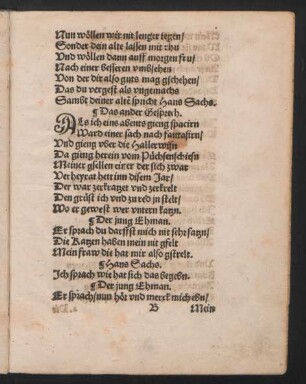 Nun wöllen wir nit lenger regen/
Sonder dein alte lassen mit rhu
Vnd wöllen dann auff morgen fru/
Nach einer besseren vmbsehen
Von der dir also guts mag gschehen/
Das du vergest als vngemachs
Sambt deiner alte spricht Hans Sachs.
¶ Das ander Gesprech.
Als ich eins abents gieng spacirn
Ward einer sach nach fantasirn/
Vnd gieng vber die Hallerwisn
Da gieng herein vom Püchsenschiesn
Meiner gsellen einer der sich zwar
Verheyrat hett inn disem Jar/
Der war zerkratzt vnd zerkrelt
Den grüst ich vnd zu red in stelt/
Wo er gewest wer vntern katzn.
¶ Der jung Ehman.
Er sprach du darffst mich nit sehr fatzn/
Die Katzen haben mein nit gfelt
Mein fraw die hat mir also gstrelt.
¶ Hans Sachs.
Ich sprach wie hat sich das begebn.
¶ Der jung Ehman.
Er sprach/nun hör vnd merck mich ebn/
B
Mein